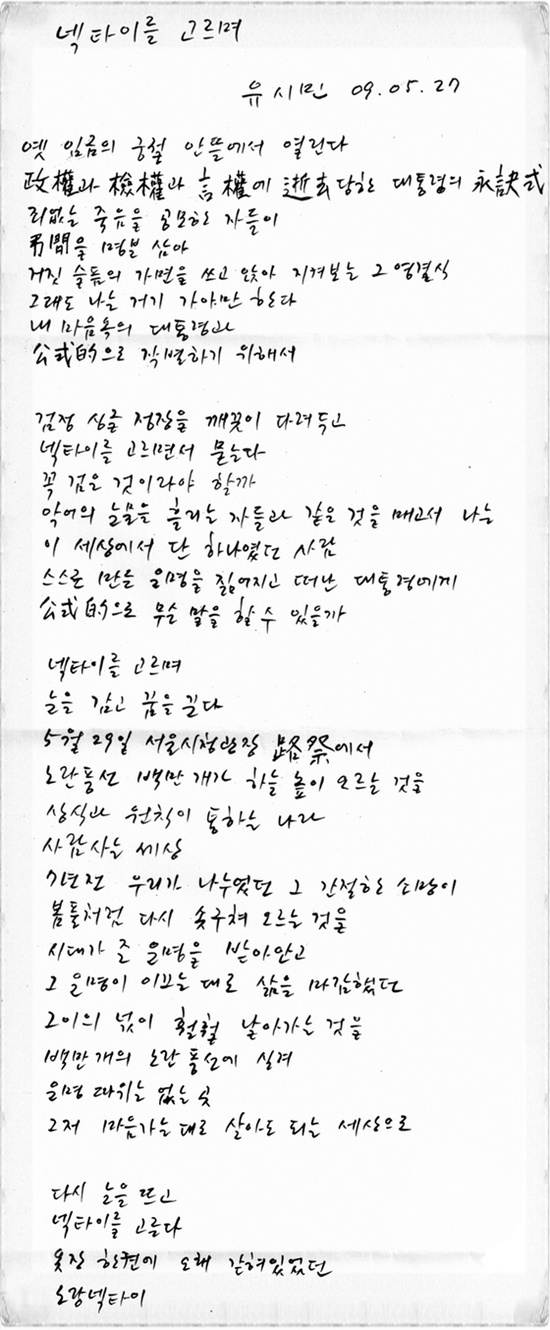 넥타이를 고르며
유시민 09.05.27
옛 임금의 궁궐 안뜰에서 열린다
政權과 檢權과 言權에 逝去당한 대통령의 永訣式
죄없는 죽음을 공모한 자들이
弔問을 명분 삼아
거짓 슬픔의 가면을 쓰고 앉아 지켜보는 그 영결식
그래도 나는 거기 가야만 한다
내 마음속의 대통령과
公式的으로 작별하기 위해서
검정 싱글 정장을 깨끗이 다려두고
넥타이를 고르면서 묻는다
꼭 검은 것이라야 할까
악어의 눈물을 흘리는 자들과 같은 것을 매고서 나는
이 세상에서 단 하나였던 사람
스스로 만든 운명을 짊어지고 떠난 대통령에게
公式的으로 무슨 말을 할 수 있을까
넥타이를 고르며
눈을 감고 꿈을 꾼다
5월 29일 서울시청광장 路祭에서
노란풍선 백만 개가 하늘 높이 오르는 것을
상식과 원칙이 통하는 나라
사람사는 세상
7년전 우리가 나누었던 그 간절한 소망이
봄풀처럼 다시 솟구쳐 오르는 것을
시대가 준 운명을 받아안고
그 운명이 이끄는 대로 삶을 마감했던
그이의 넋이 훨훨 날아가는 것을
백만개의 노란 풍선에 실려
운명 따위는 없는 곳
그저 마음가는대로 살아도 되는 세상으로
다시 눈을 뜨고
넥타이를 고른다
옷장 한켠에 오래 갇혀있었던
노랑넥타이